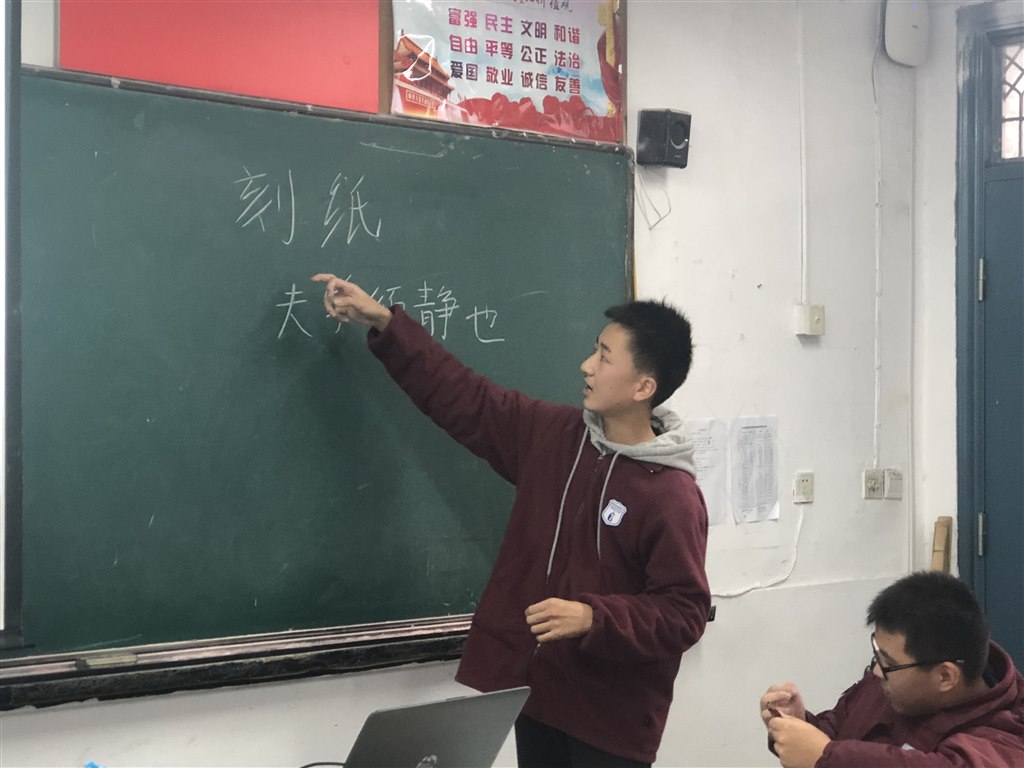 富强 民主 文明 和谐
自由 平等 公正 法治
爱国 敬业 诚信 友善
刻纸
夫 须静也